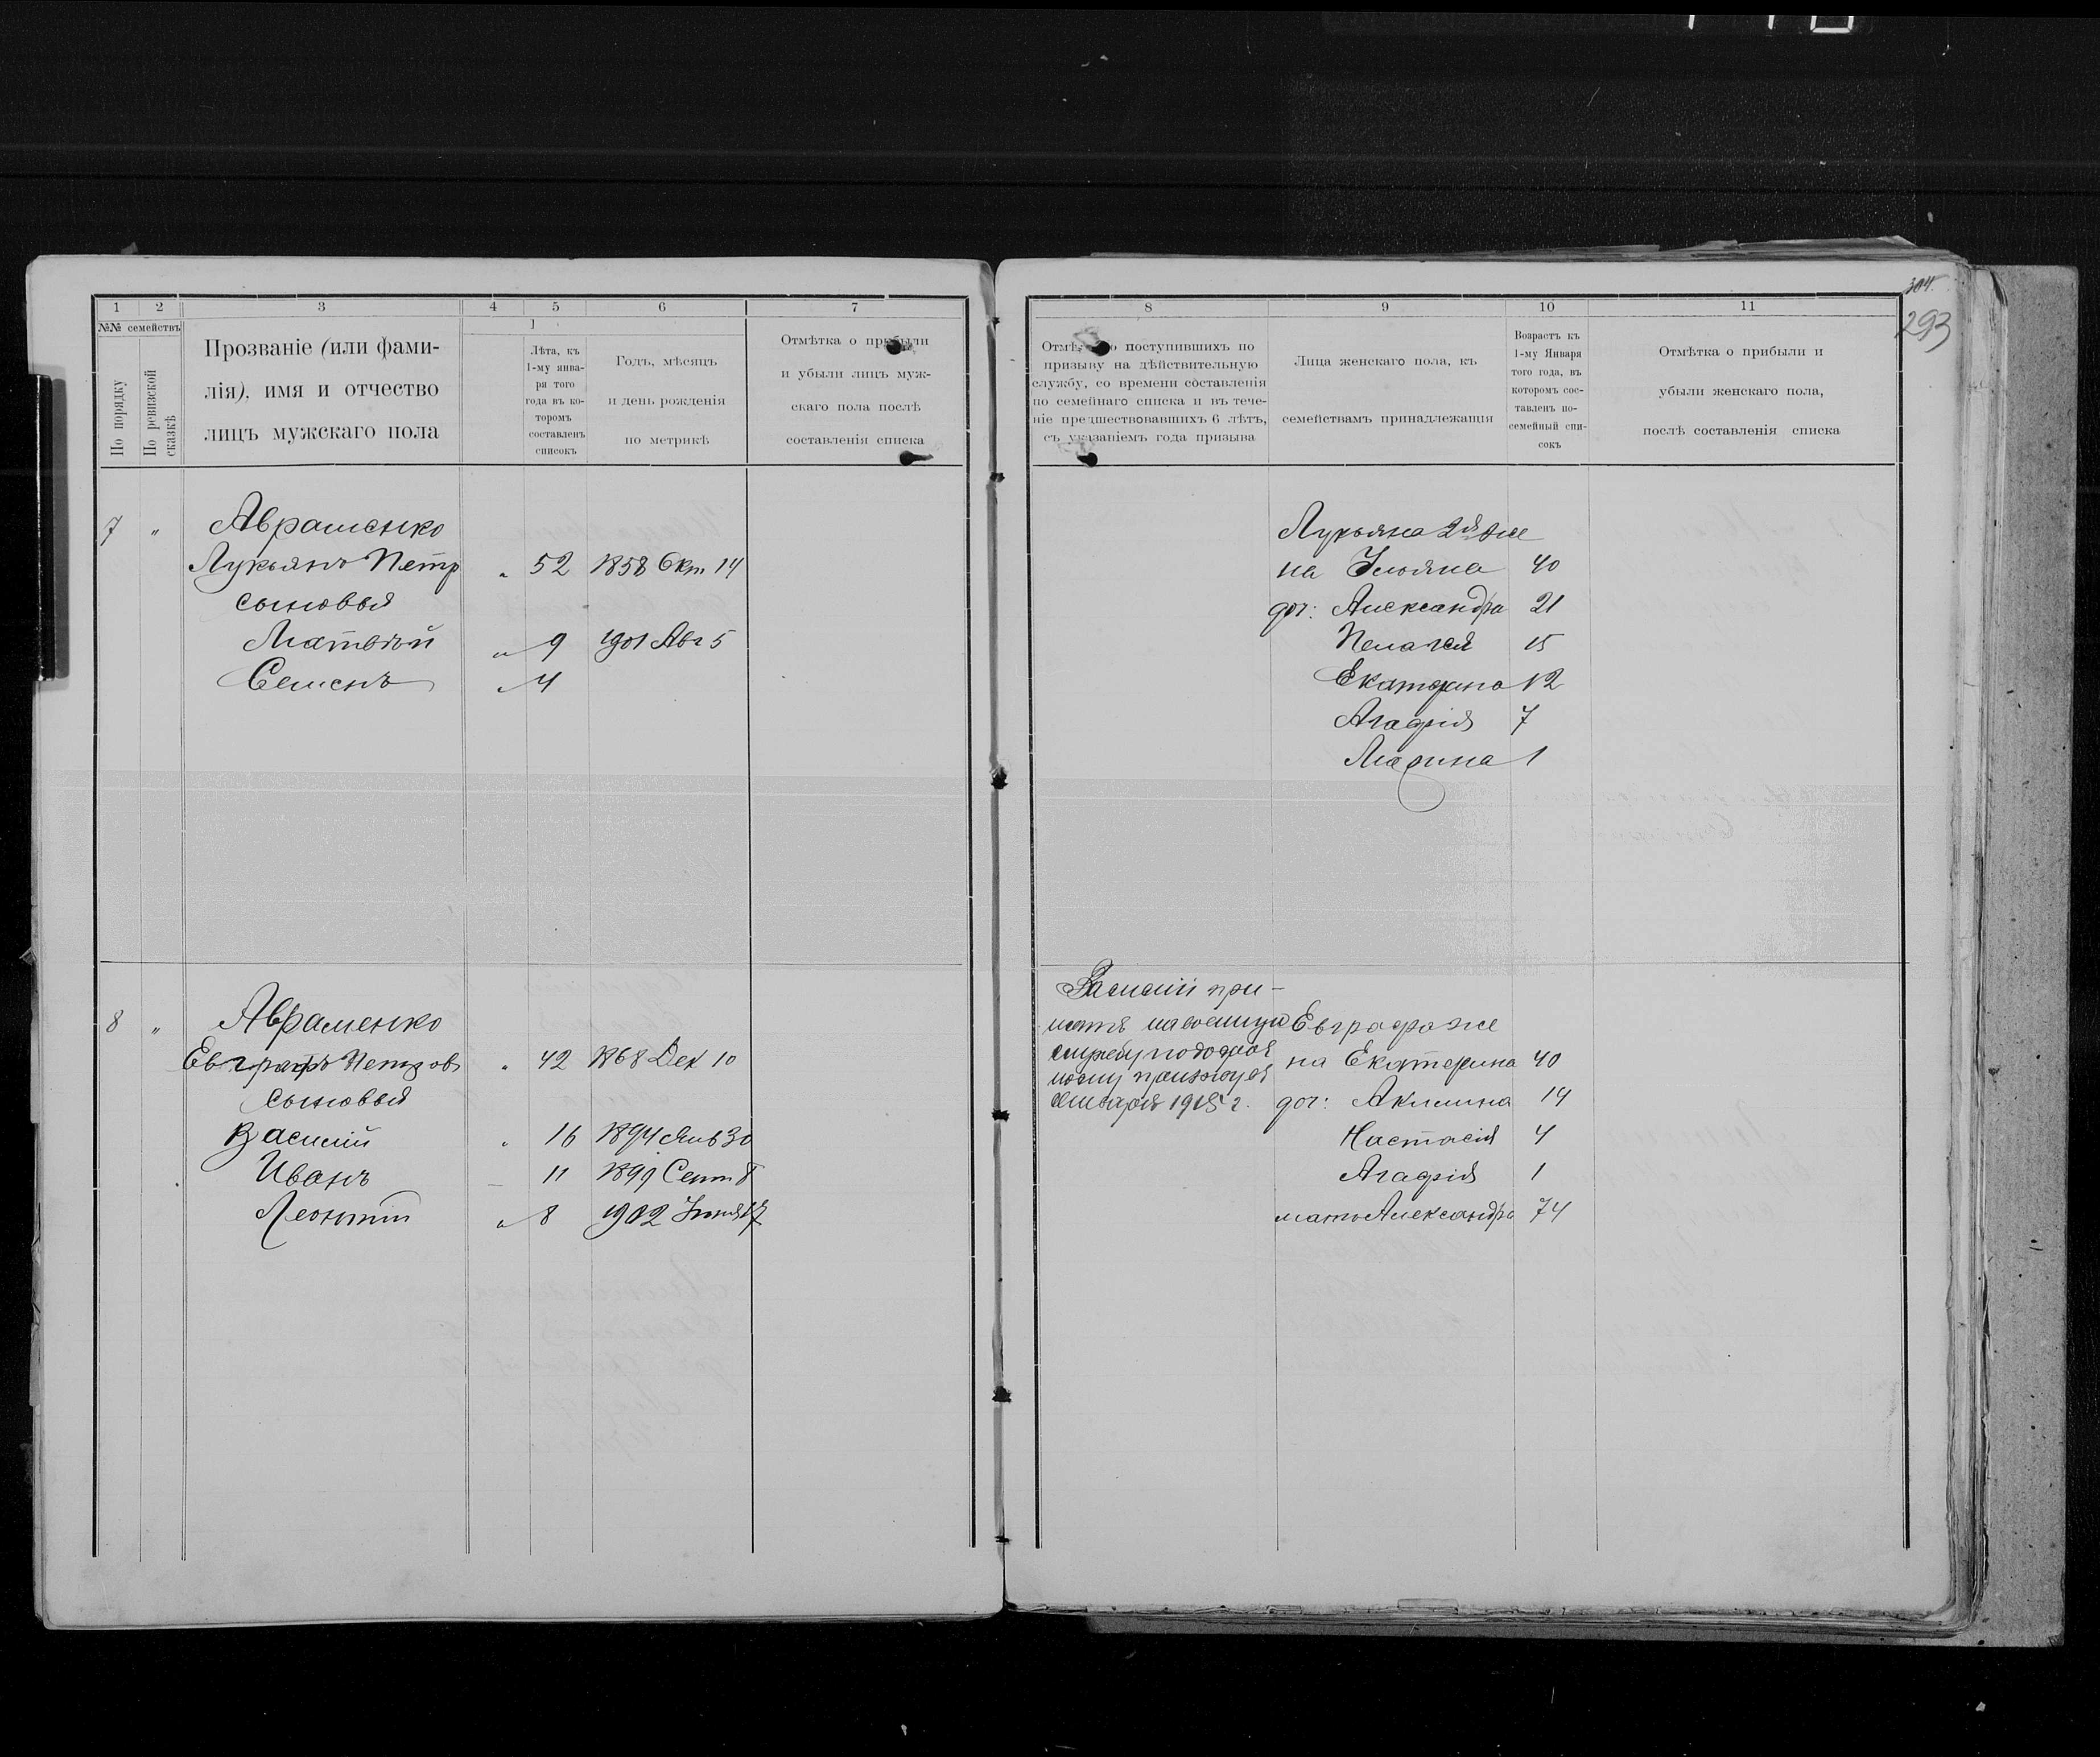 304.
293
1 2 3 4 5 6 7
№№ семействъ
По порядку
По ревизской сказкѣ
Прозваніе (или фами-
лія), имя и отчество
лицъ мужскаго пола
Лѣта, къ
1-му янва-
ря того
года въ ко-
торомъ
составленъ
списокъ
Годъ, мѣсяцъ
и день рожденія
по метрикѣ
Отмѣтка о прибыли
и убыли лицъ муж-
скаго пола послѣ
составленія списка
7 " Авраменко
Лукьянъ Петр " 52 1858 Окт 14
сыновья
Матвѣй " 9 1901 Авг 5
Семенъ " 4
8 " Авраменко
Евграфъ Петровъ " 42 1868 Дек 10
сыновья
Василій " 16 1894 Янв 30
Иванъ 11 1899 Сент 8
Леонтій " 8 1902 Іюня 17
8 9 10 11
Отмѣтка о поступившихъ по
призыву на дѣйствительную
службу, со времени составленія
по семейнаго списка и въ тече-
ніе предшествовавшихъ 6 лѣтъ,
съ указаніемъ года призыва
Лица женскаго пола, къ
семействамъ принадлежащія
Возрастъ къ
1-му Января
того года, въ
которомъ сос-
тавленъ по-
семейный спи-
сокъ
Отмѣтка о прибыли и
убыли женскаго пола,
послѣ составленія списка
Лукьяна 2я же
на Ульяна 40
доч: Александра 21
Пелагея 15
Екатерина 12
Агафія 7
Марина 1
Василій при-
нятъ на военную
службу по досроч
ному призыву
Января 1915 г.
Евграфа же
на Екатерина 40
доч: Акилина 14
Настасія 4
Агафія 1
мать Александра 74